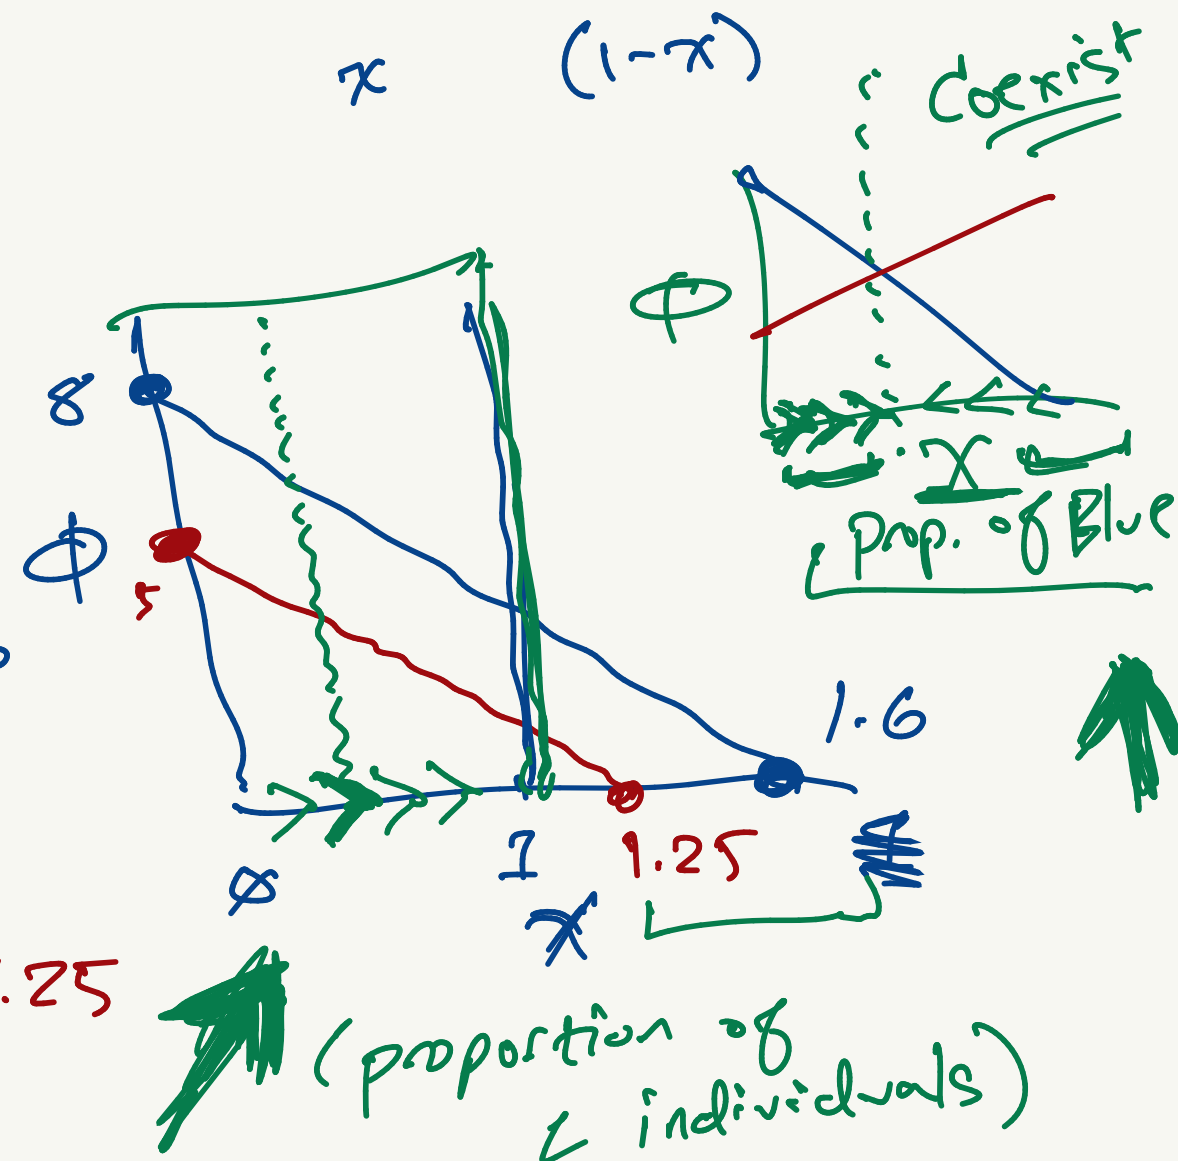 x (1-x)
Coexist
ϕ
8
x
prop. of Blue
ϕ
5
1.6
0
1
1.25
x
.25
(proportion of
individuals)